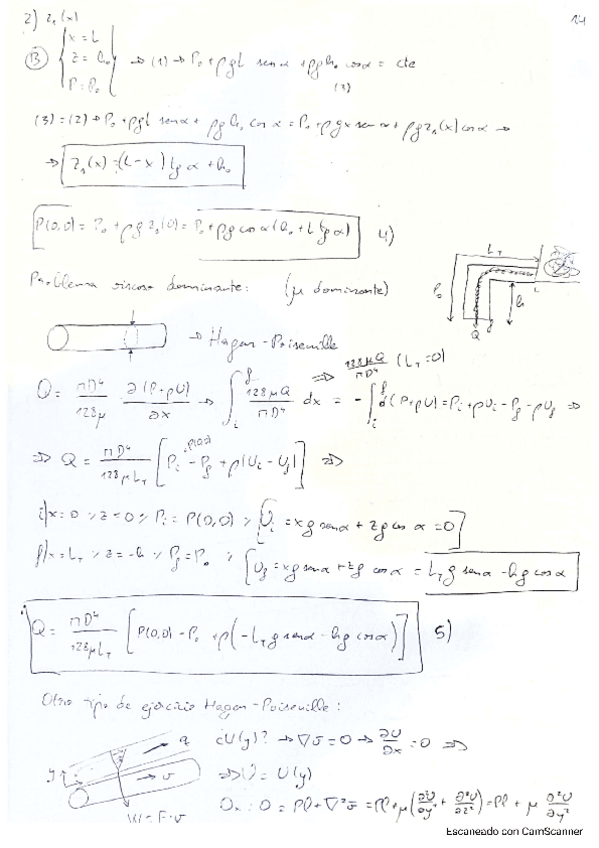 2) z₁(x)
14
B { x = L
z = h₀
P = P₀ } → (1) → P₀ + ρgL senα + ρgh₀ cosα = cte
(3)
(3) = (2) → P₀ + ρgL senα + ρgh₀ cosα = P₀ + ρgx senα + ρgz₁(x) cosα ⇒
⇒ z₁(x) = (L-x) tgα + h₀
P(0,0) = P₀ + ρg z₁(0) = P₀ + ρg cosα (h₀ + L tgα) 4)
Problema viscoso dominante: (μ dominante)
→ Hagen-Poiseuille
Q = πD⁴/128μ ∂(P+ρU)/∂x → ∫ᵢᶠ 128μQ/πD⁴ dx = -∫ᵢᶠ d(P+ρU) = Pᵢ + ρUᵢ - P_f - ρU_f ⇒
⇒ 128μQ/πD⁴ (L_T = 0)
⇒ Q = πD⁴/128μL_T [Pᵢ - P_f + ρ(Uᵢ - U_f)] ⇒
i/x=0 ; z=0 ; Pᵢ = P(0,0) ; [Uᵢ = xg senα + zg cosα = 0]
f/x=L_T ; z=-h ; P_f = P₀ ; [U_f = xg senα + zg cosα = L_T g senα - hg cosα
Q = πD⁴/128μL_T [P(0,0) - P₀ + ρ(-L_T g senα - hg cosα)] 5)
Otro tipo de ejercicio Hagen-Poiseuille:
¿U(y)? → ∇v̄ = 0 → ∂U/∂x = 0 ⇒
⇒ U = U(y)
Oₓ : 0 = Pl + ∇²v̄ = Pl + μ(∂²U/∂y² + ∂²U/∂z²) = Pl + μ ∂²U/∂y²
W = F·v
Escaneado con CamScanner